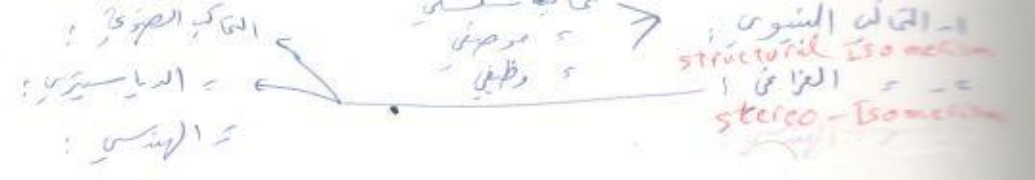 ١- التماكب البنيوي :
structural Isomerism
٢- = الفراغي :
stereo - Isomerism
= موضعي
= وظيفي
التماكب الضوئي :
= الدياستيري :
= الهندسي :